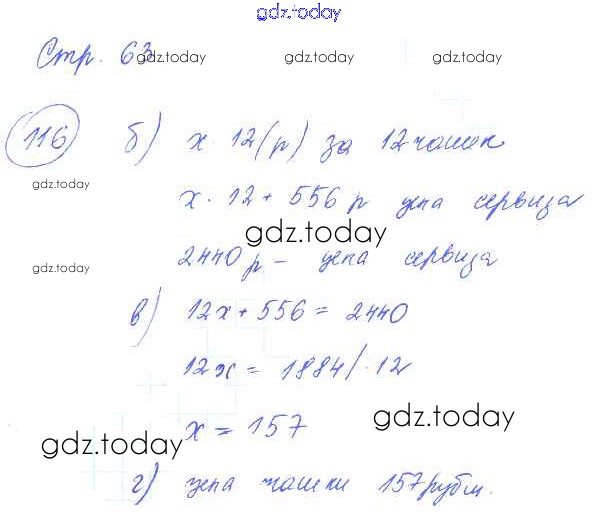 gdz.today
Стр. 63
gdz.today gdz.today gdz.today
116 б) x · 12 (р) за 12 чашек
gdz.today
x · 12 + 556 р цена сервиза
gdz.today
2440 р – цена сервиза
gdz.today
в) 12x + 556 = 2440
12x = 1884 / · 12
gdz.today
x = 157
gdz.today
г) цена чашки 157 рубл.